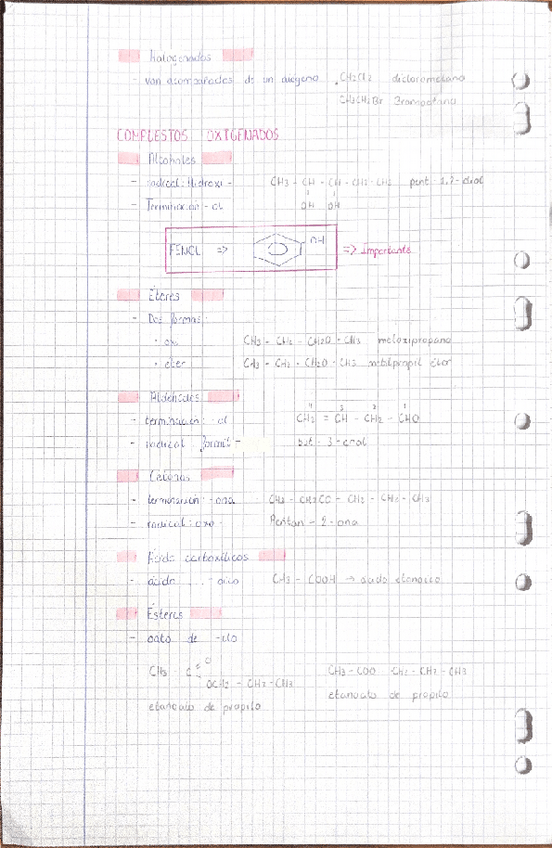 Halogenados
- van acompañados de un oxígeno. CH2Cl2 diclorometano
CH3CH2Br Bromoetano
COMPUESTOS OXIGENADOS
Alcoholes
- radical: Hidroxi - CH3 - CH - CH - CH2 - CH3 pent-
- Terminación - ol OH OH
FENOL => OH => Importante
Éteres
- Dos formas:
· oxi CH3 - CH2 - CH2O - CH3 metoxipropano
· éter CH3 - CH2 - CH2O - CH3 metilpropil éter
Aldehídos
4 3 2 1
- terminación: - al CH2 = CH - CH2 - CHO
- radical formil - but - 3 - enal
Cetonas
- terminación: - ona CH3 - CO - CH2 - CH2 - CH3
- radical: oxo - Pentan - 2 - ona
Ácido carboxílicos
- ácido ... - oico CH3 - COOH → ácido etanoico
Ésteres
- oato de - ilo
CH3 - C = O CH3 - COO - CH2 - CH2 - CH3
OCH2 - CH2 - CH3
etanoato de propilo etanoato de propilo